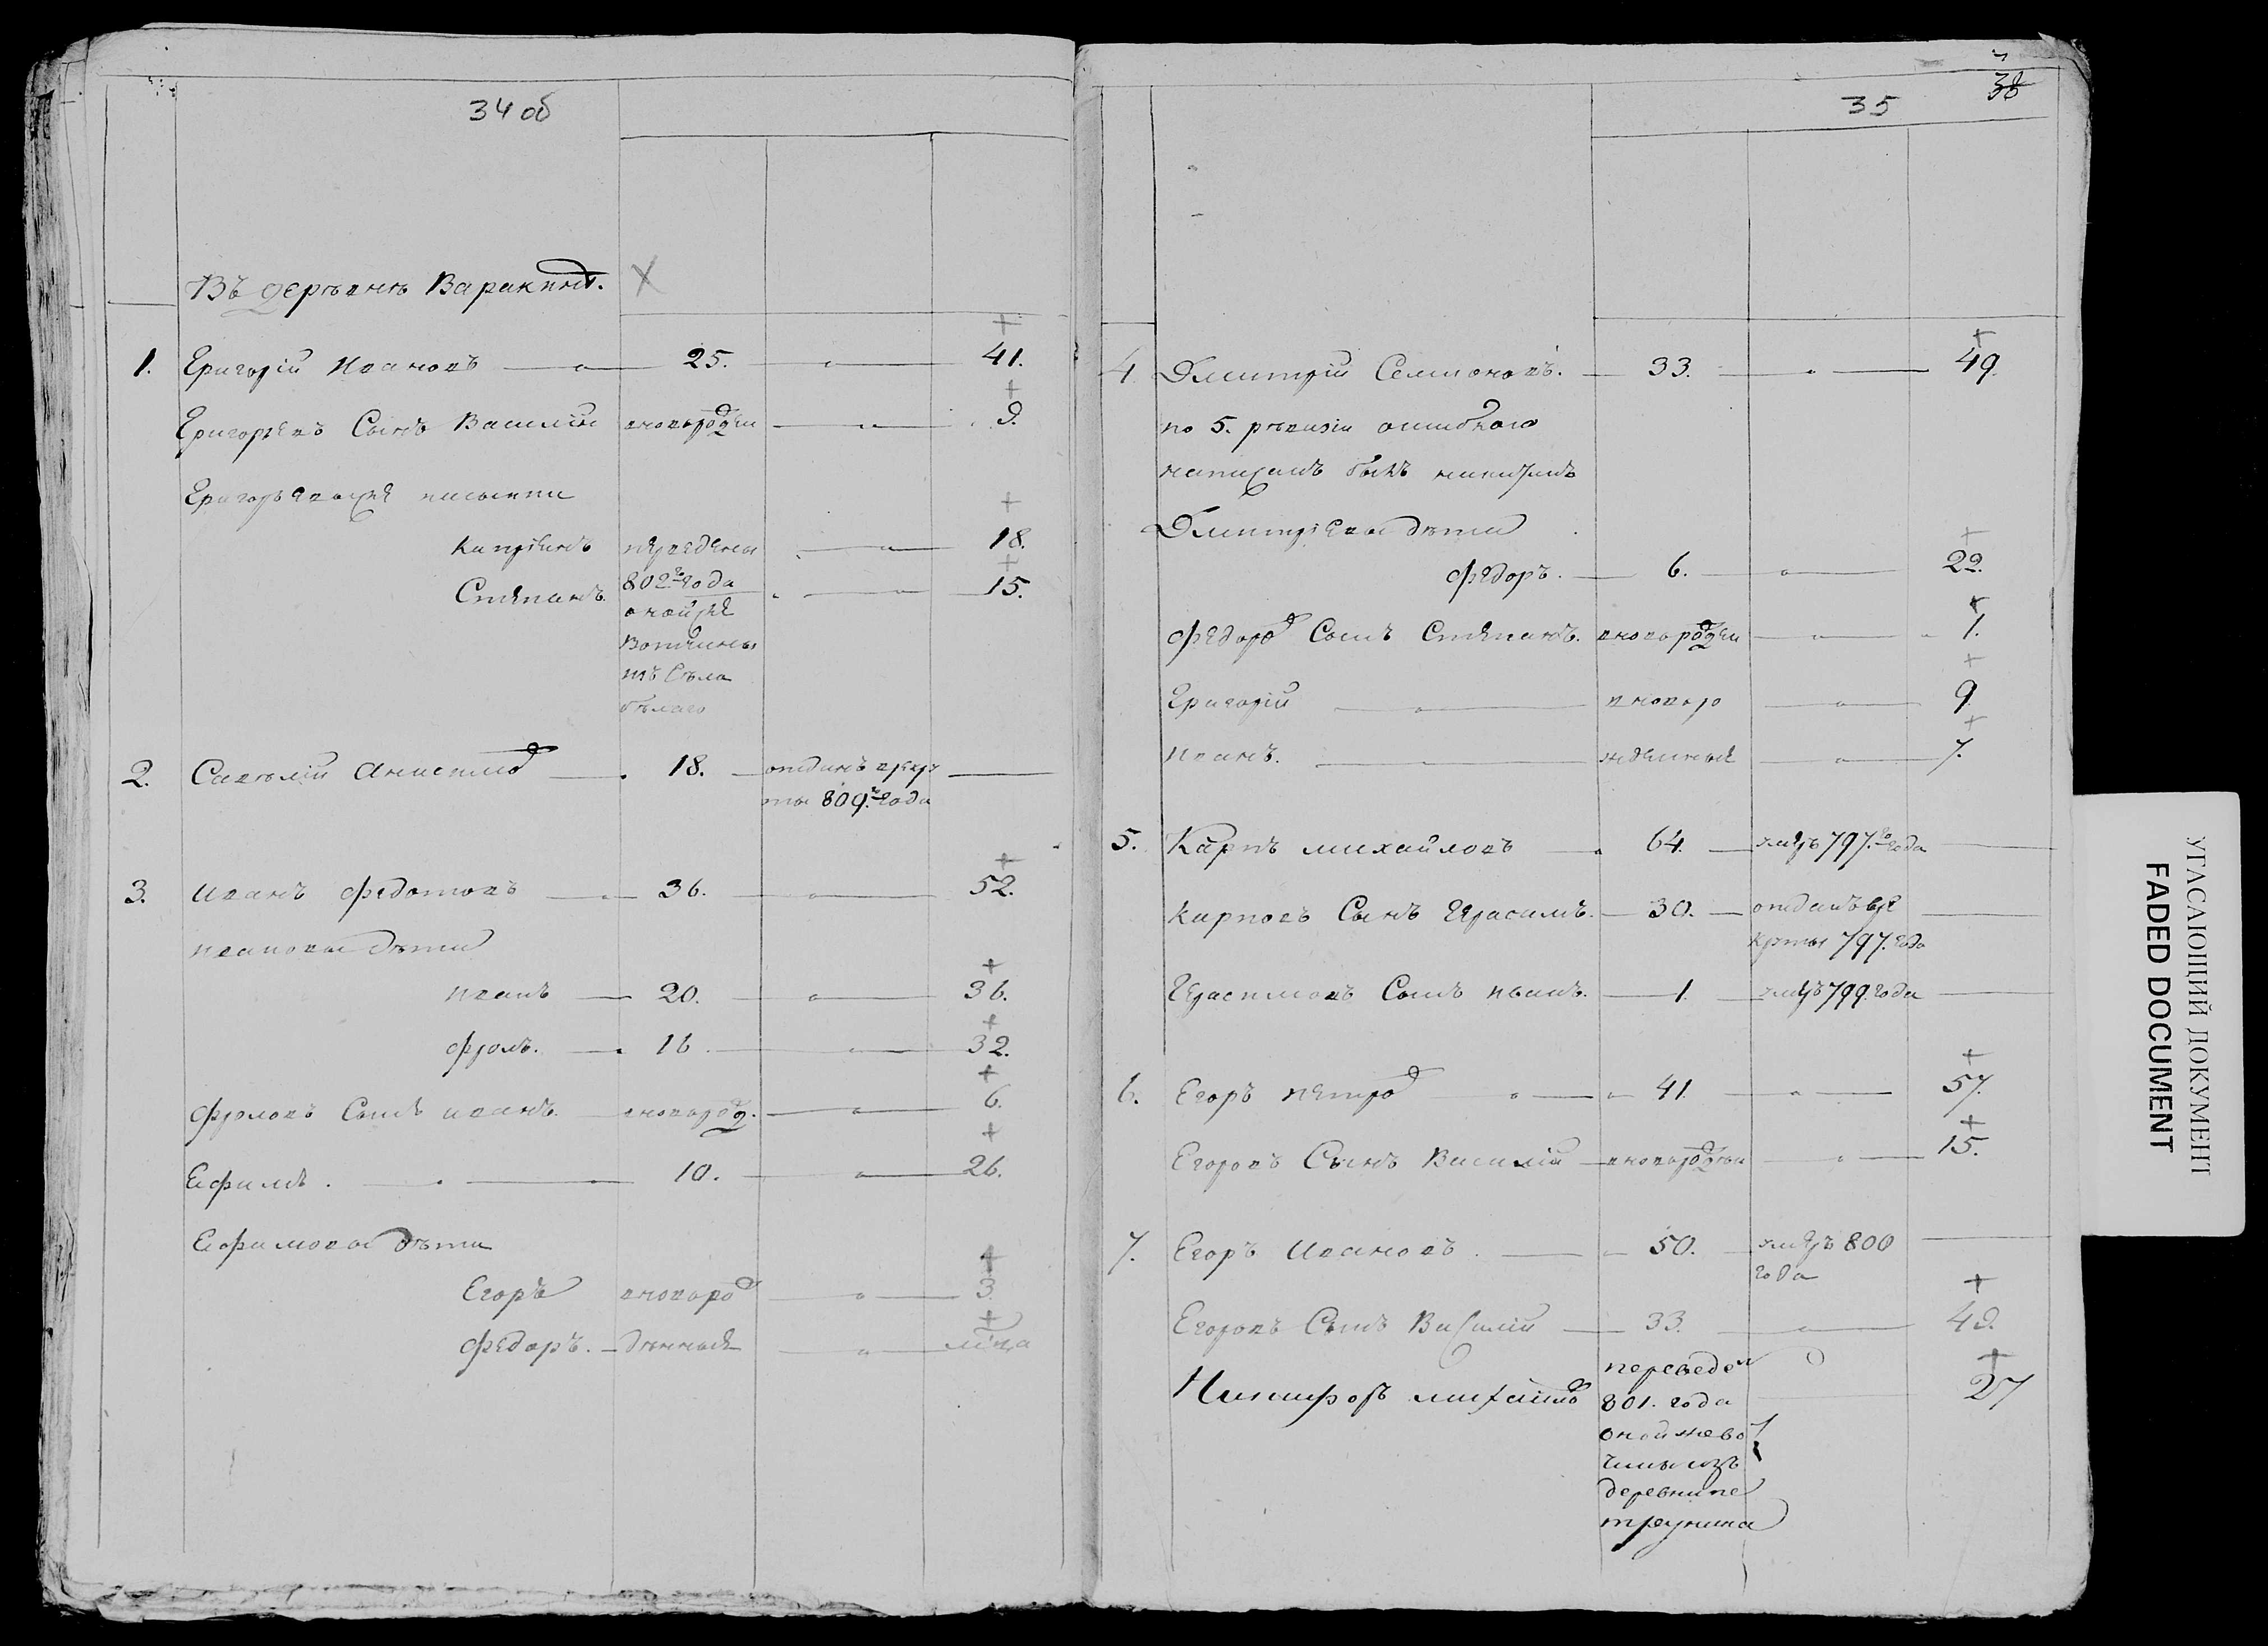 34 об
Въ деревнѣ Варакинѣ.
1. Григорій Ивановъ 25. 41.
Григорьевъ Сынъ Василій новорожден 9.
Григорьевы же пасынки
Капріянъ переведены 18.
Степанъ 802го года 15.
оной же
вотчины
изъ Села
бѣлаго
2. Савѣлій Анисимов 18. отданъ врекру
ты 809го года
3. Иванъ Федотовъ 36. 52.
ивановы дѣти
иванъ 20. 36.
фролъ. 16. 32.
фроловъ Сынъ иванъ. новорожд. 6.
Ефимъ. 10. 26.
Ефимовы дѣти
Егоръ новорож 3.
Федоръ. денныя
38
35
4. Дмитрій Семионовъ. 33. 49.
по 5. ревизіи ошибкою
написанъ былъ никитинъ
Дмитріевы дѣти
Федоръ. 6. 22.
Федоров Сынъ Степанъ. новорожден 1.
Григорій новоро 9
Иванъ. жденныя 7.
5. Карпъ михайловъ 64. умеръ 797.го года
Карповъ Сынъ Герасимъ. 30. отданъ вре
круты 797. года
Герасимовъ Сынъ иванъ. 1. умеръ 799. года
6. Егоръ петров 41. 57.
Егоровъ Сынъ Василій новорожден 15.
7. Егоръ Ивановъ. 50. умеръ 800
года
Егоровъ Сынъ Василій 33. 49.
Никифоръ михайлов переведен 27
801. года
оной же во
чины изъ
деревни пе
трунина
УГАСАЮЩИЙ ДОКУМЕНТ
FADED DOCUMENT